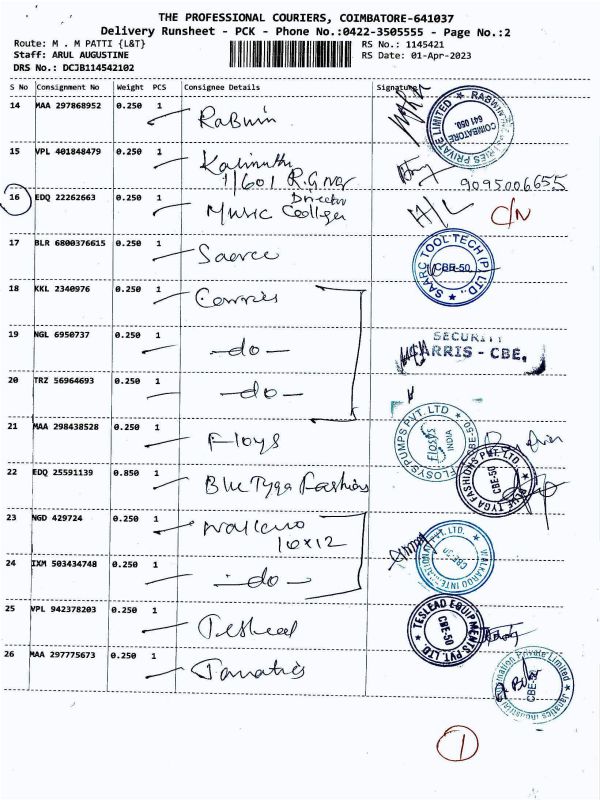 THE PROFESSIONAL COURIERS, COIMBATORE-641037
Delivery Runsheet - PCK - Phone No.:0422-3505555 - Page No.:2
Route: M . M PATTI {L&T} RS No.: 1145421
Staff: ARUL AUGUSTINE RS Date: 01-Apr-2023
DRS No.: DCJB114542102
S No Consignment No Weight PCS Consignee Details Signature
14 MAA 297868952 0.250 1 Rabwin
COIMBATORE 641 050.
15 VPL 401848479 0.250 1
1/601 R.G Nar 9095006655
16 EDQ 22262663 0.250 1 Director
Music College H/L C/N
17 BLR 6800376615 0.250 1 Saarc
SAARC TOOL TECH (P) LTD., CBE-50
18 KKL 2340976 0.250 1
19 NGL 6950737 0.250 1 -do-
SECURITY
CARRIS - CBE.
20 TRZ 56964693 0.250 1 -do-
21 MAA 298438528 0.250 1 Floys
FLOSYS PUMPS PVT. LTD CBE-50 FLOSYS INDIA
22 EDQ 25591139 0.850 1 Blue Tyga Fashions
BLUE TYGA FASHIONS PVT LTD CBE-50
23 NGD 429724 0.250 1
10x12
24 IXM 503434748 0.250 1 -do-
WALKAROO INTERNATIONAL PVT. LTD. CBE-50
25 VPL 942378203 0.250 1 Teslead
TESLEAD EQUIPMENTS PVT. LTD CBE-50
26 MAA 297775673 0.250 1 Janatics
Private Limited Janatics Industrial
1